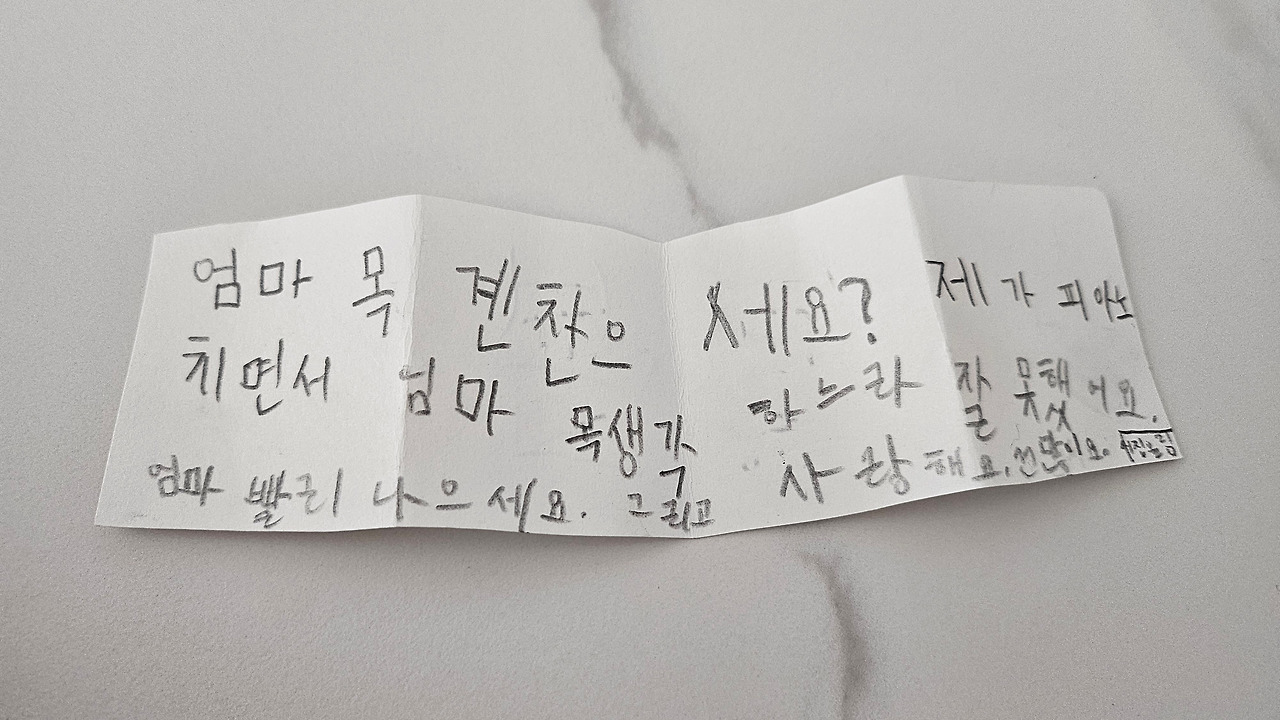 엄마 목 곈찬으세요? 제가 피아노
치면서 엄마 목생각 하느라 잘 못했어요.
엄마 빨리 나으세요. 그리고 사랑해요.